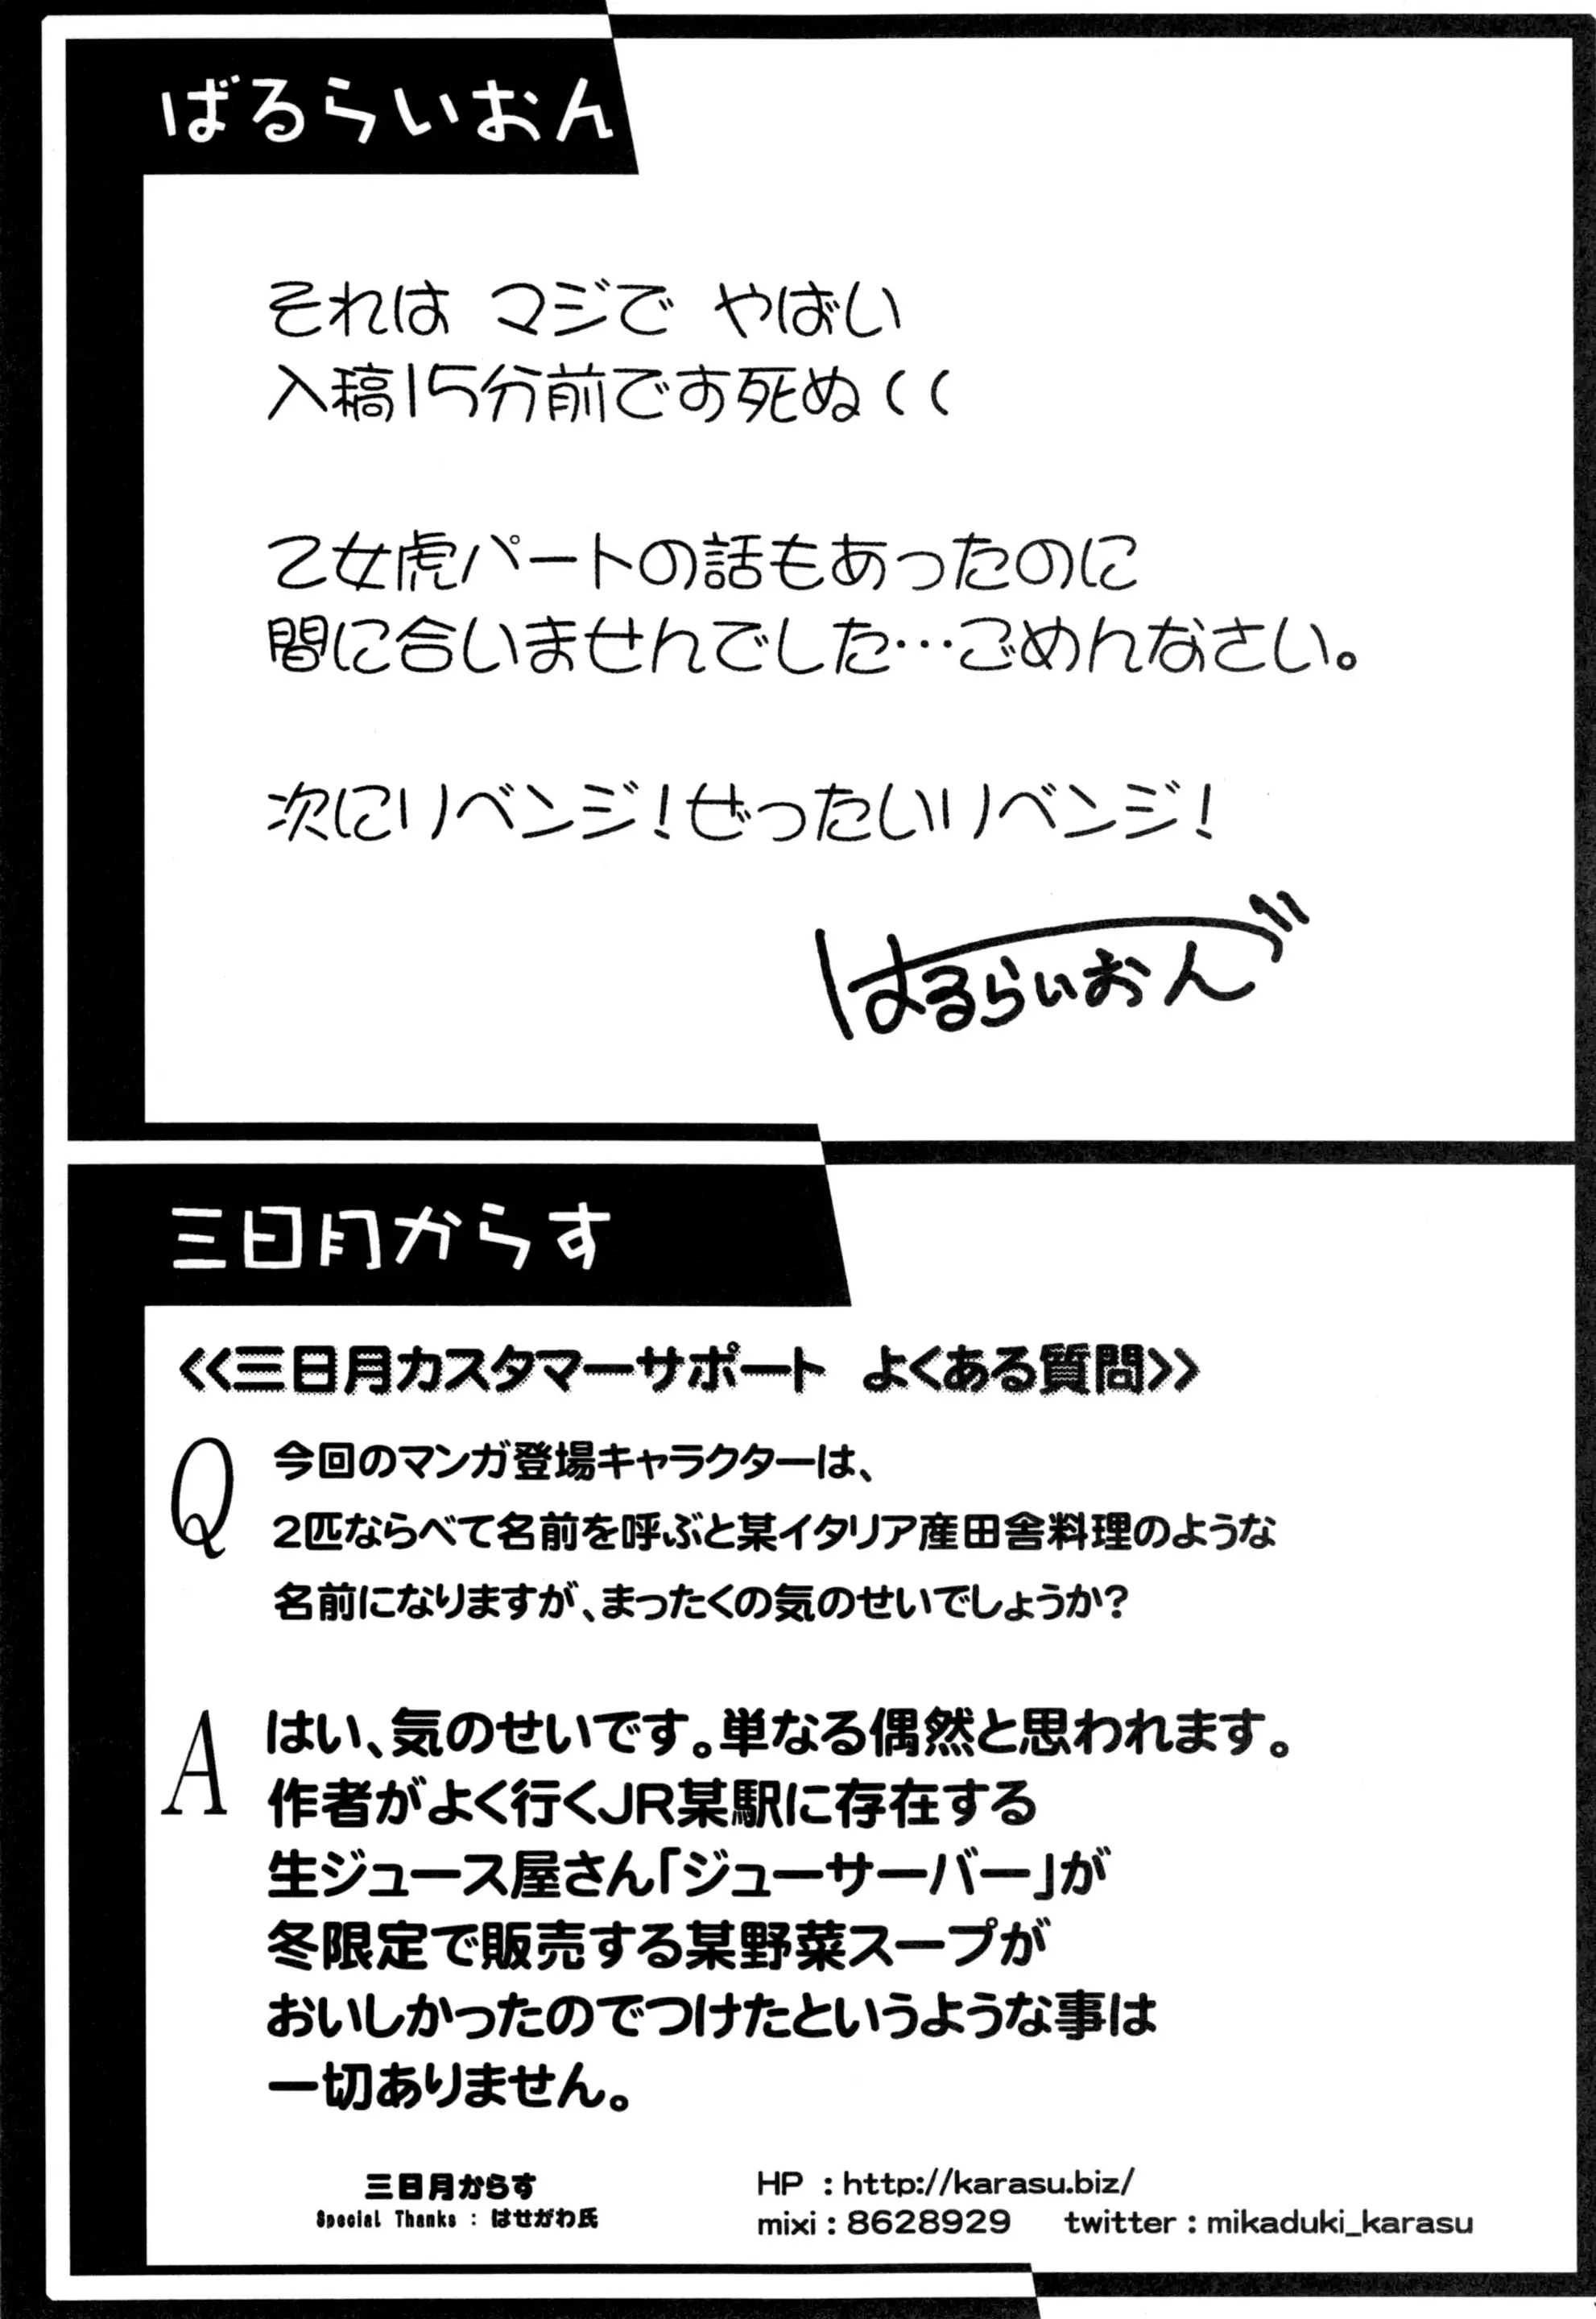 ばるらいおん
それは マジで やばい
入稿15分前です死ぬ((
乙女虎パートの話もあったのに
間に合いませんでした…ごめんなさい。
次にリベンジ!ぜったいリベンジ!
ばるらいおん
三日月からす
<<三日月カスタマーサポート よくある質問>>
Q 今回のマンガ登場キャラクターは、
2匹ならべて名前を呼ぶと某イタリア産田舎料理のような
名前になりますが、まったくの気のせいでしょうか?
A はい、気のせいです。単なる偶然と思われます。
作者がよく行くJR某駅に存在する
生ジュース屋さん「ジューサーバー」が
冬限定で販売する某野菜スープが
おいしかったのでつけたというような事は
一切ありません。
三日月からす
Special Thanks : はせがわ氏
HP : http://karasu.biz/
mixi : 8628929 twitter : mikaduki_karasu